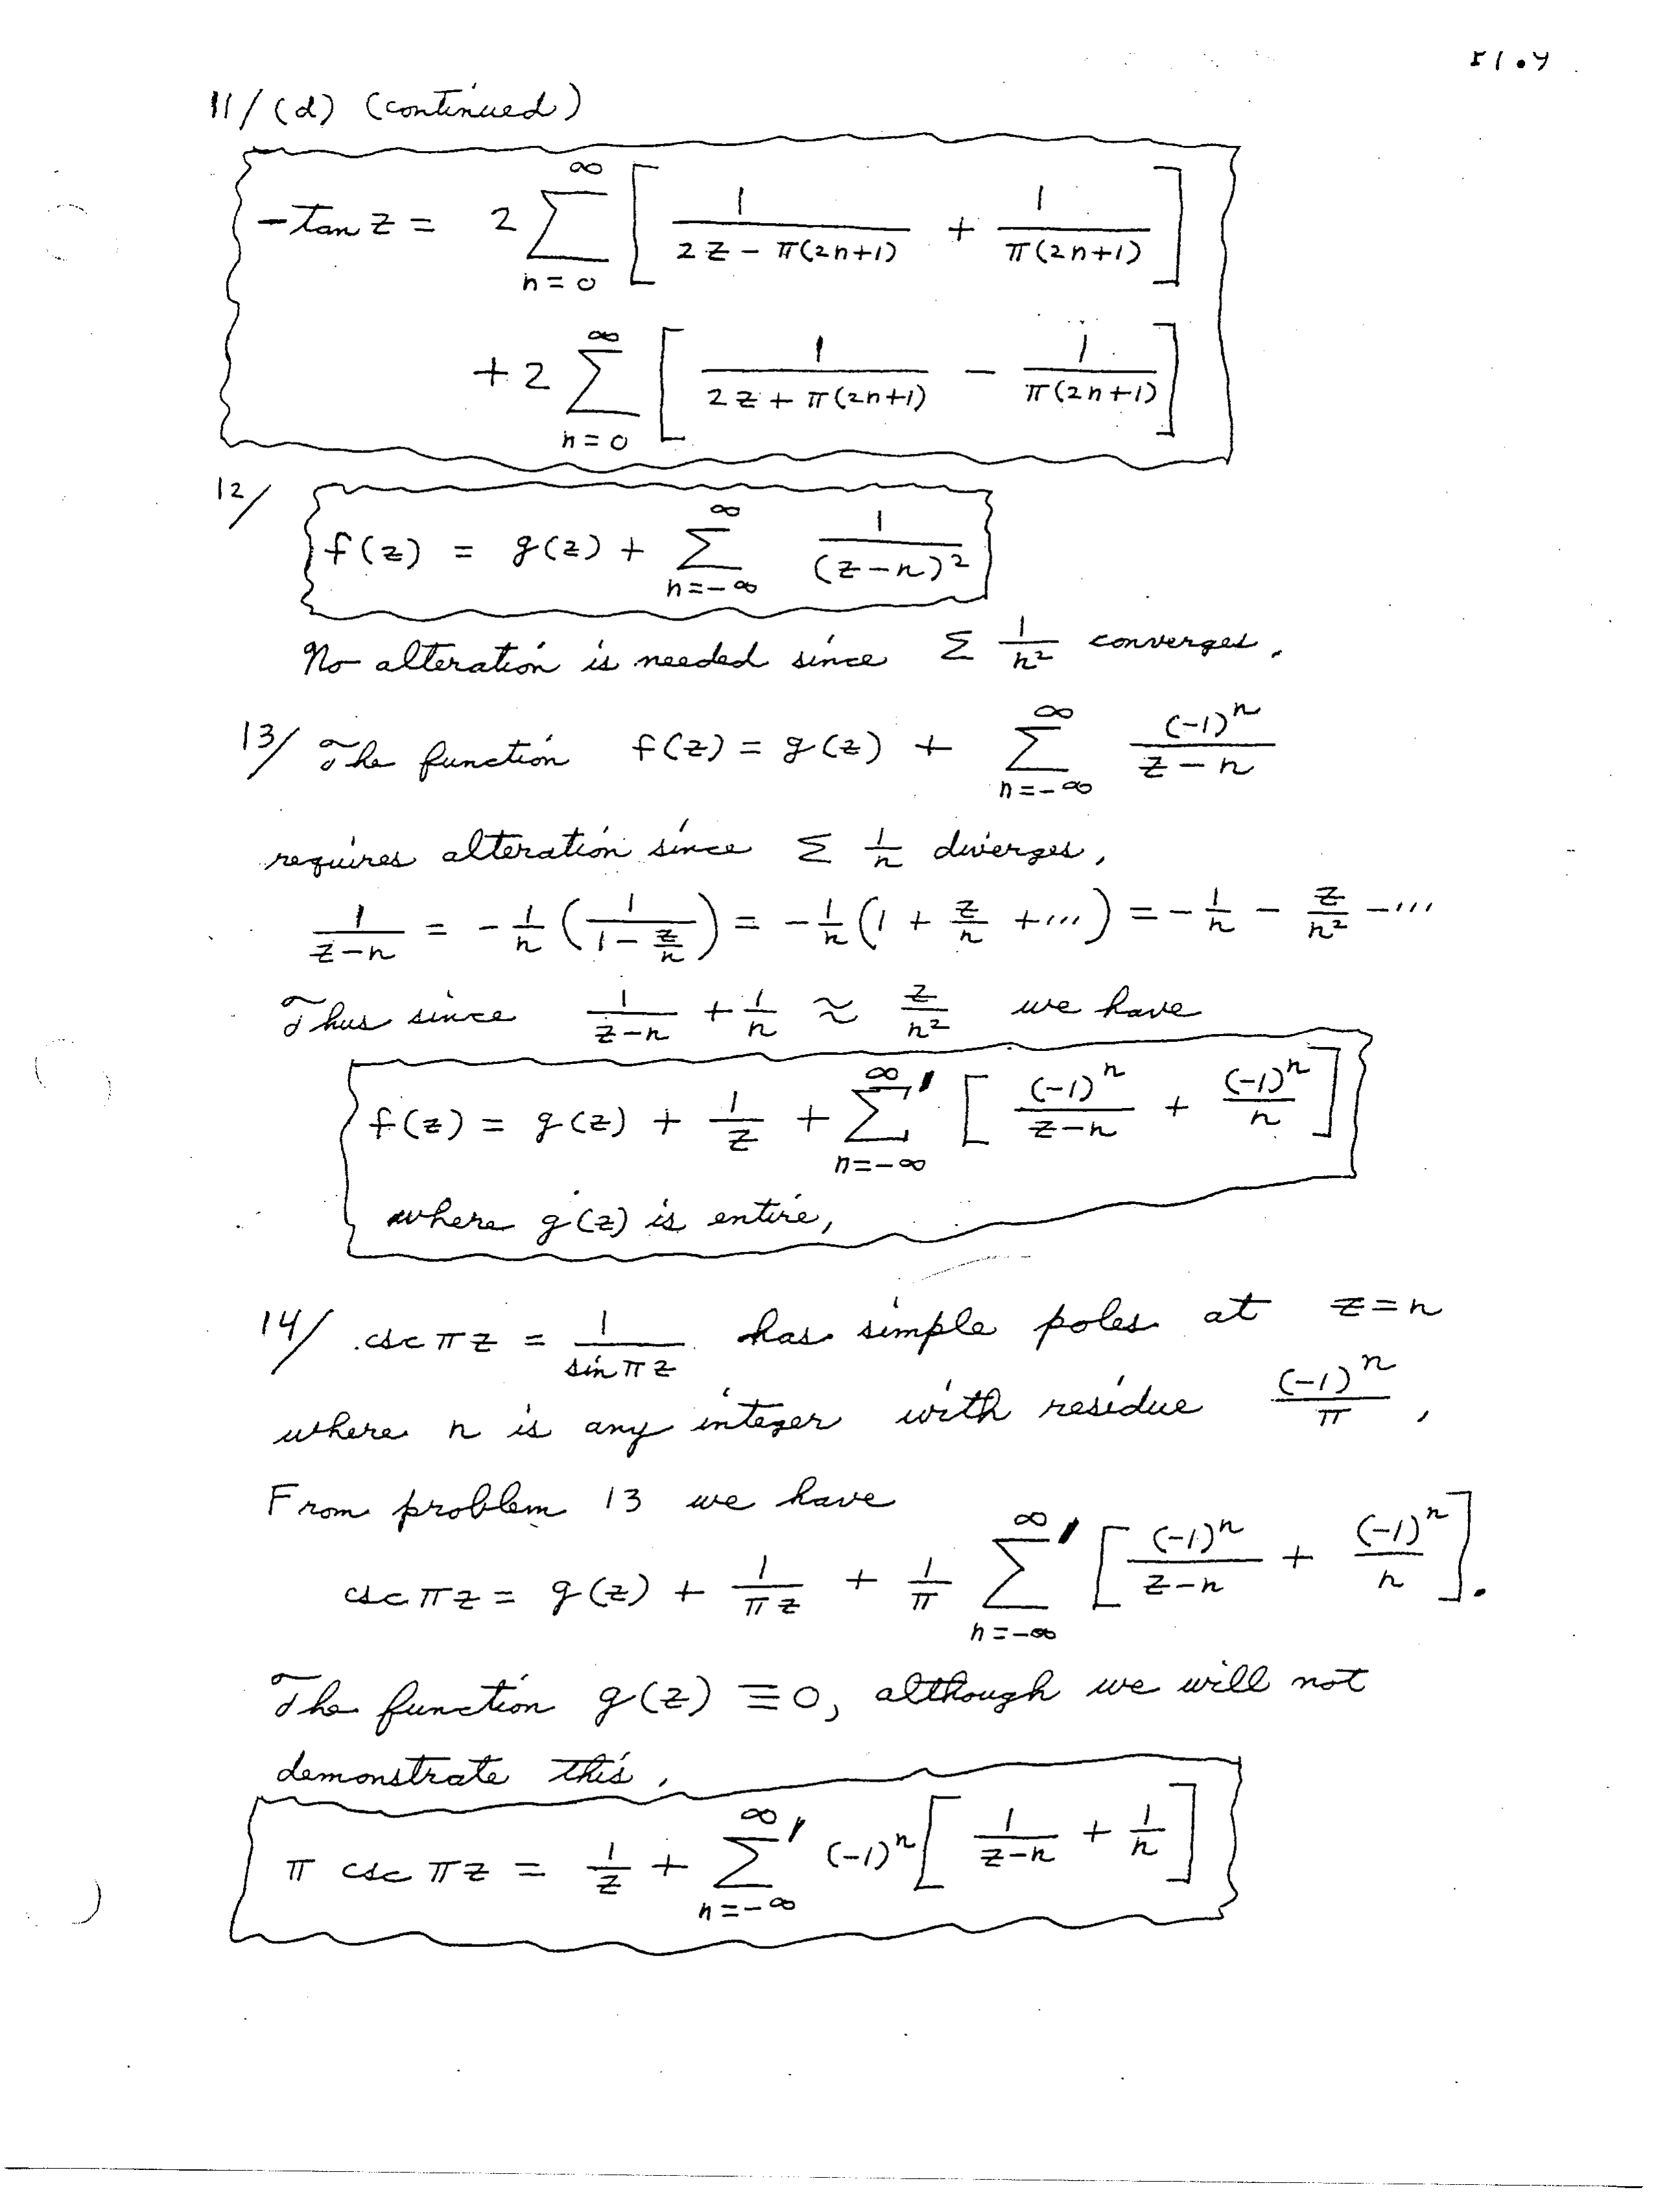 51.4
11/ (d) (continued)
-tan z = 2 ∑_{n=0}^{∞} [ 1/(2z - π(2n+1)) + 1/(π(2n+1)) ]
+ 2 ∑_{n=0}^{∞} [ 1/(2z + π(2n+1)) - 1/(π(2n+1)) ]
12/ f(z) = g(z) + ∑_{n=-∞}^{∞} 1/(z-n)²
No alteration is needed since Σ 1/n² converges.
13/ The function f(z) = g(z) + ∑_{n=-∞}^{∞} (-1)ⁿ/(z-n)
requires alteration since Σ 1/n diverges.
1/(z-n) = -1/n (1/(1 - z/n)) = -1/n (1 + z/n + ...) = -1/n - z/n² - ...
Thus since 1/(z-n) + 1/n ≈ z/n² we have
f(z) = g(z) + 1/z + ∑'_{n=-∞}^{∞} [ (-1)ⁿ/(z-n) + (-1)ⁿ/n ]
where g(z) is entire.
14/ csc πz = 1/(sin πz) has simple poles at z = n
where n is any integer with residue (-1)ⁿ/π.
From problem 13 we have
csc πz = g(z) + 1/(πz) + 1/π ∑'_{n=-∞}^{∞} [ (-1)ⁿ/(z-n) + (-1)ⁿ/n ].
The function g(z) ≡ 0, although we will not
demonstrate this.
π csc πz = 1/z + ∑'_{n=-∞}^{∞} (-1)ⁿ [ 1/(z-n) + 1/n ]